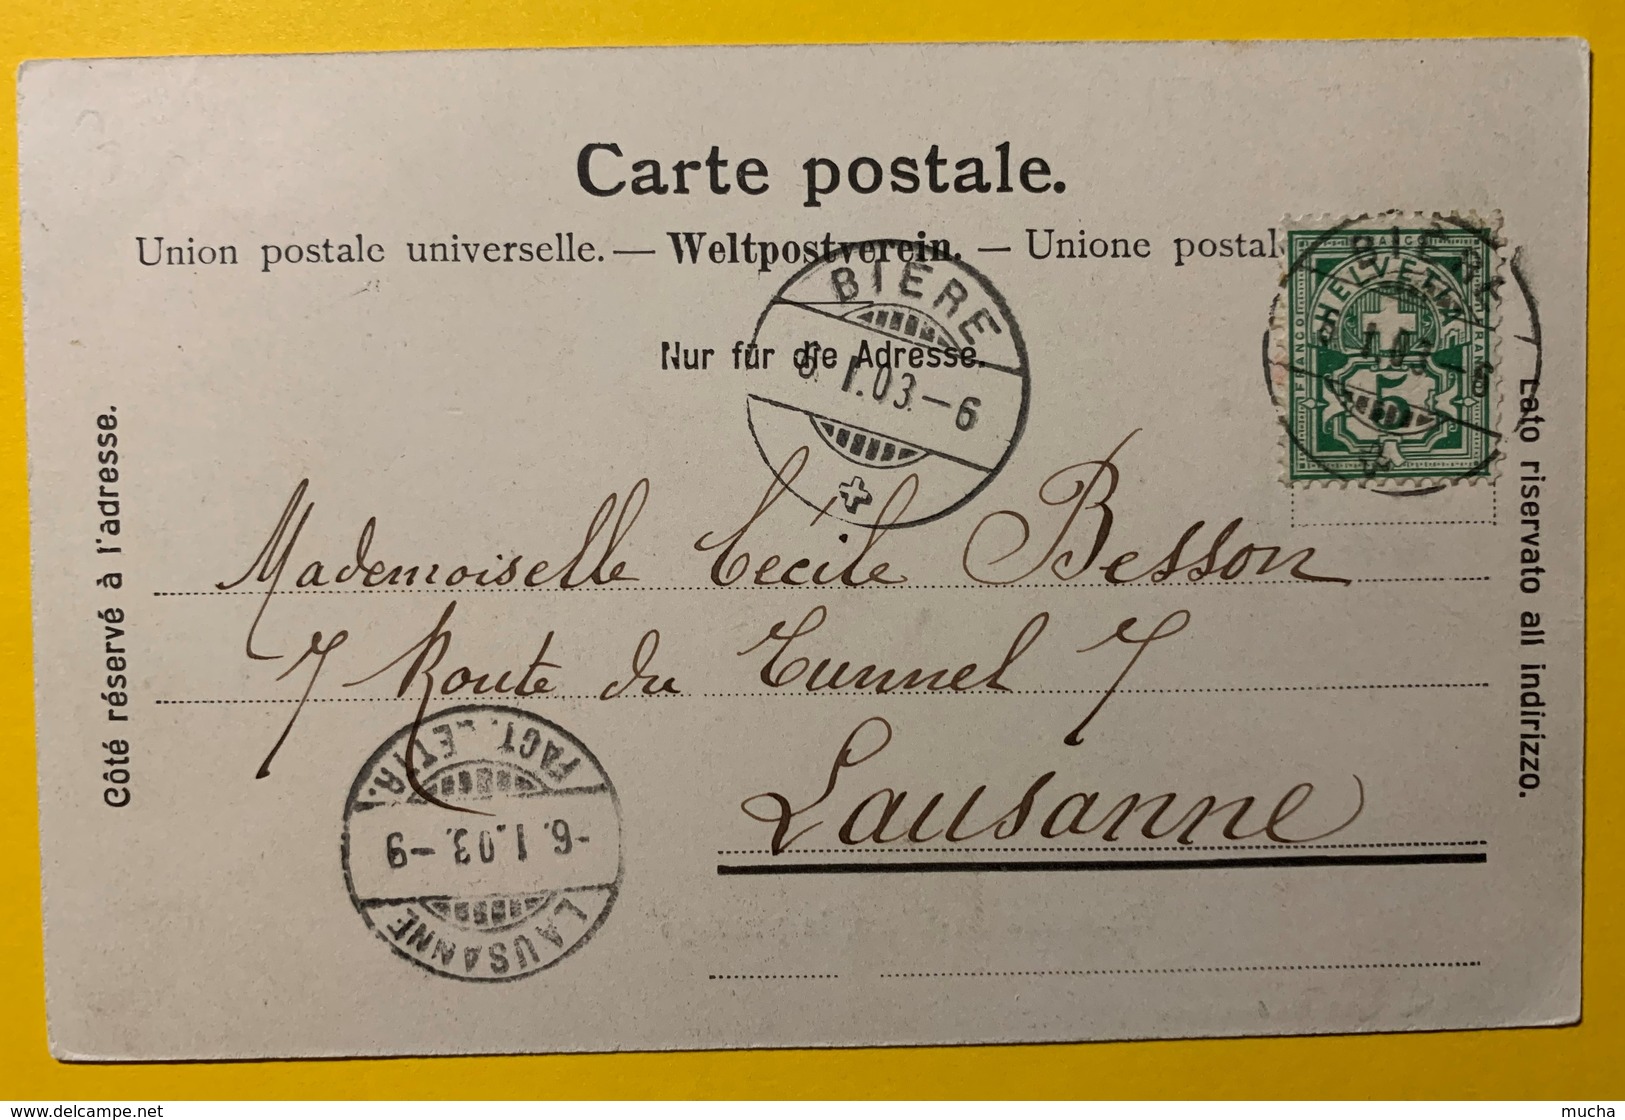 Carte postale.
Union postale universelle. — Weltpostverein. — Unione postal
Nur für die Adresse.
BIERE
I.03.–6
BIERE
I.03 –6
FRANCO
HELVETIA
FRANCO
5
Côté réservé à l'adresse.
Lato riservato all indirizzo.
Mademoiselle Cécile Besson
7 Route du Tunnel 7
Lausanne
LAUSANNE
-6.1.03.-9
FACT. LETTR.
delcampe.net
mucha